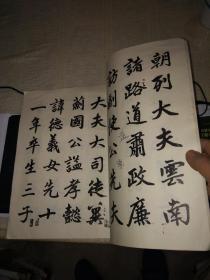 朝列大夫雲南
諸路道肅政廉
訪副使公先夫
大夫大司徒冀
薊國公謚孝懿
諱德義女先十
一年卒生三子